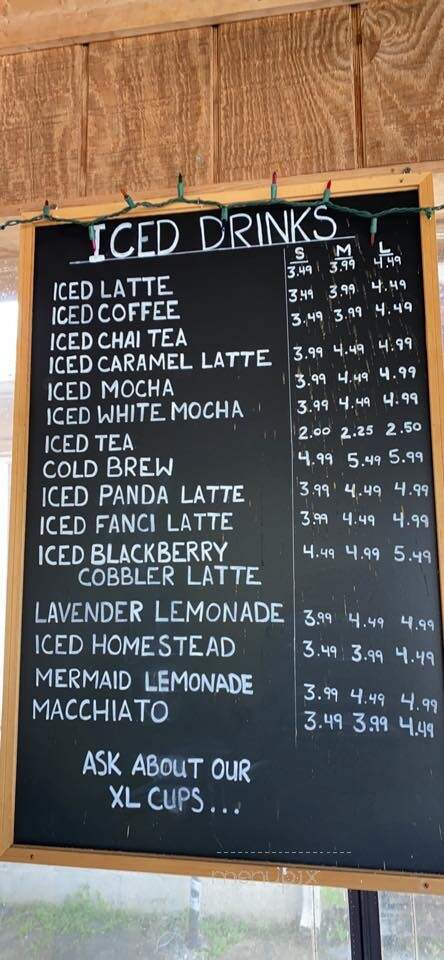 ICED DRINKS
S M L
ICED LATTE 3.49 3.99 4.49
ICED COFFEE 3.49 3.99 4.49
ICED CHAI TEA 3.49 3.99 4.49
ICED CARAMEL LATTE 3.99 4.49 4.99
ICED MOCHA 3.99 4.49 4.99
ICED WHITE MOCHA 3.99 4.49 4.99
ICED TEA 2.00 2.25 2.50
COLD BREW 4.99 5.49 5.99
ICED PANDA LATTE 3.99 4.49 4.99
ICED FANCI LATTE 3.99 4.49 4.99
ICED BLACKBERRY 4.49 4.99 5.49
COBBLER LATTE
LAVENDER LEMONADE 3.99 4.49 4.99
ICED HOMESTEAD 3.49 3.99 4.49
MERMAID LEMONADE 3.99 4.49 4.99
MACCHIATO 3.49 3.99 4.49
ASK ABOUT OUR
XL CUPS...
menupix